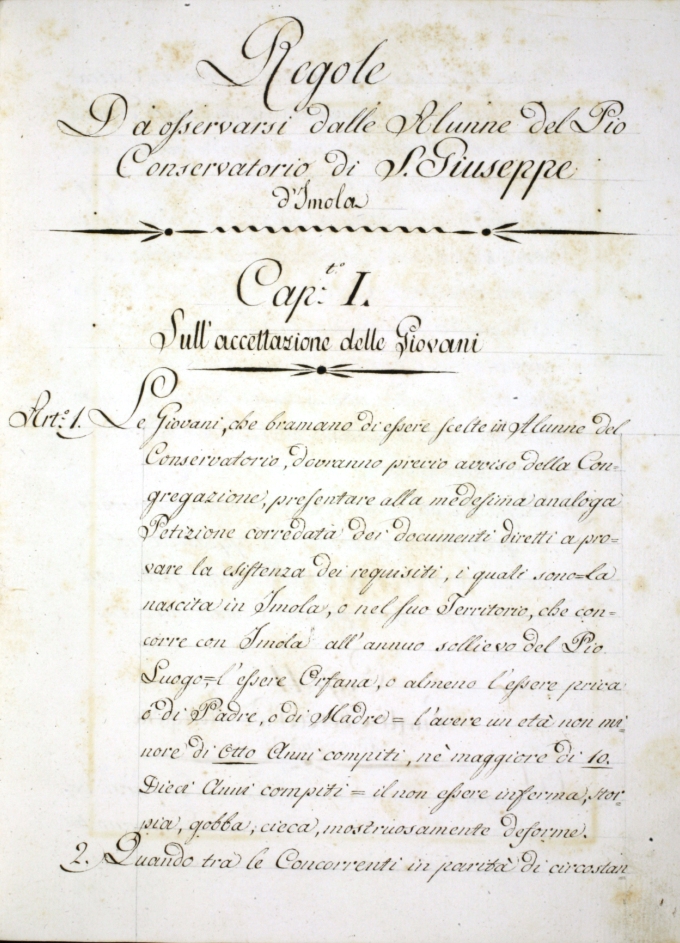 Regole
Da osservarsi dalle Alunne del Pio
Conservatorio di S. Giuseppe
d'Imola
Cap.to I.
Sull'accettazione delle Giovani
Art.o 1. Le Giovani, che bramano di essere scelte in Alunne del
Conservatorio, dovranno previo avviso della Con=
gregazione, presentare alla medesima analoga
Petizione corredata dei documenti diretti a pro=
vare la esistenza dei requisiti, i quali sono=la
nascita in Imola, o nel suo Territorio, che con=
corre con Imola all'annuo sollievo del Pio
Luogo=l'essere Orfana, o almeno l'essere priva
o di Padre, o di Madre= l'avere un età non mi=
nore di Otto Anni compiti, nè maggiore di 10.
Dieci Anni compiti = il non essere inferma, stor=
pia, gobba, cieca, mostruosamente deforme.
2. Quando tra le Concorrenti in parità di circostan